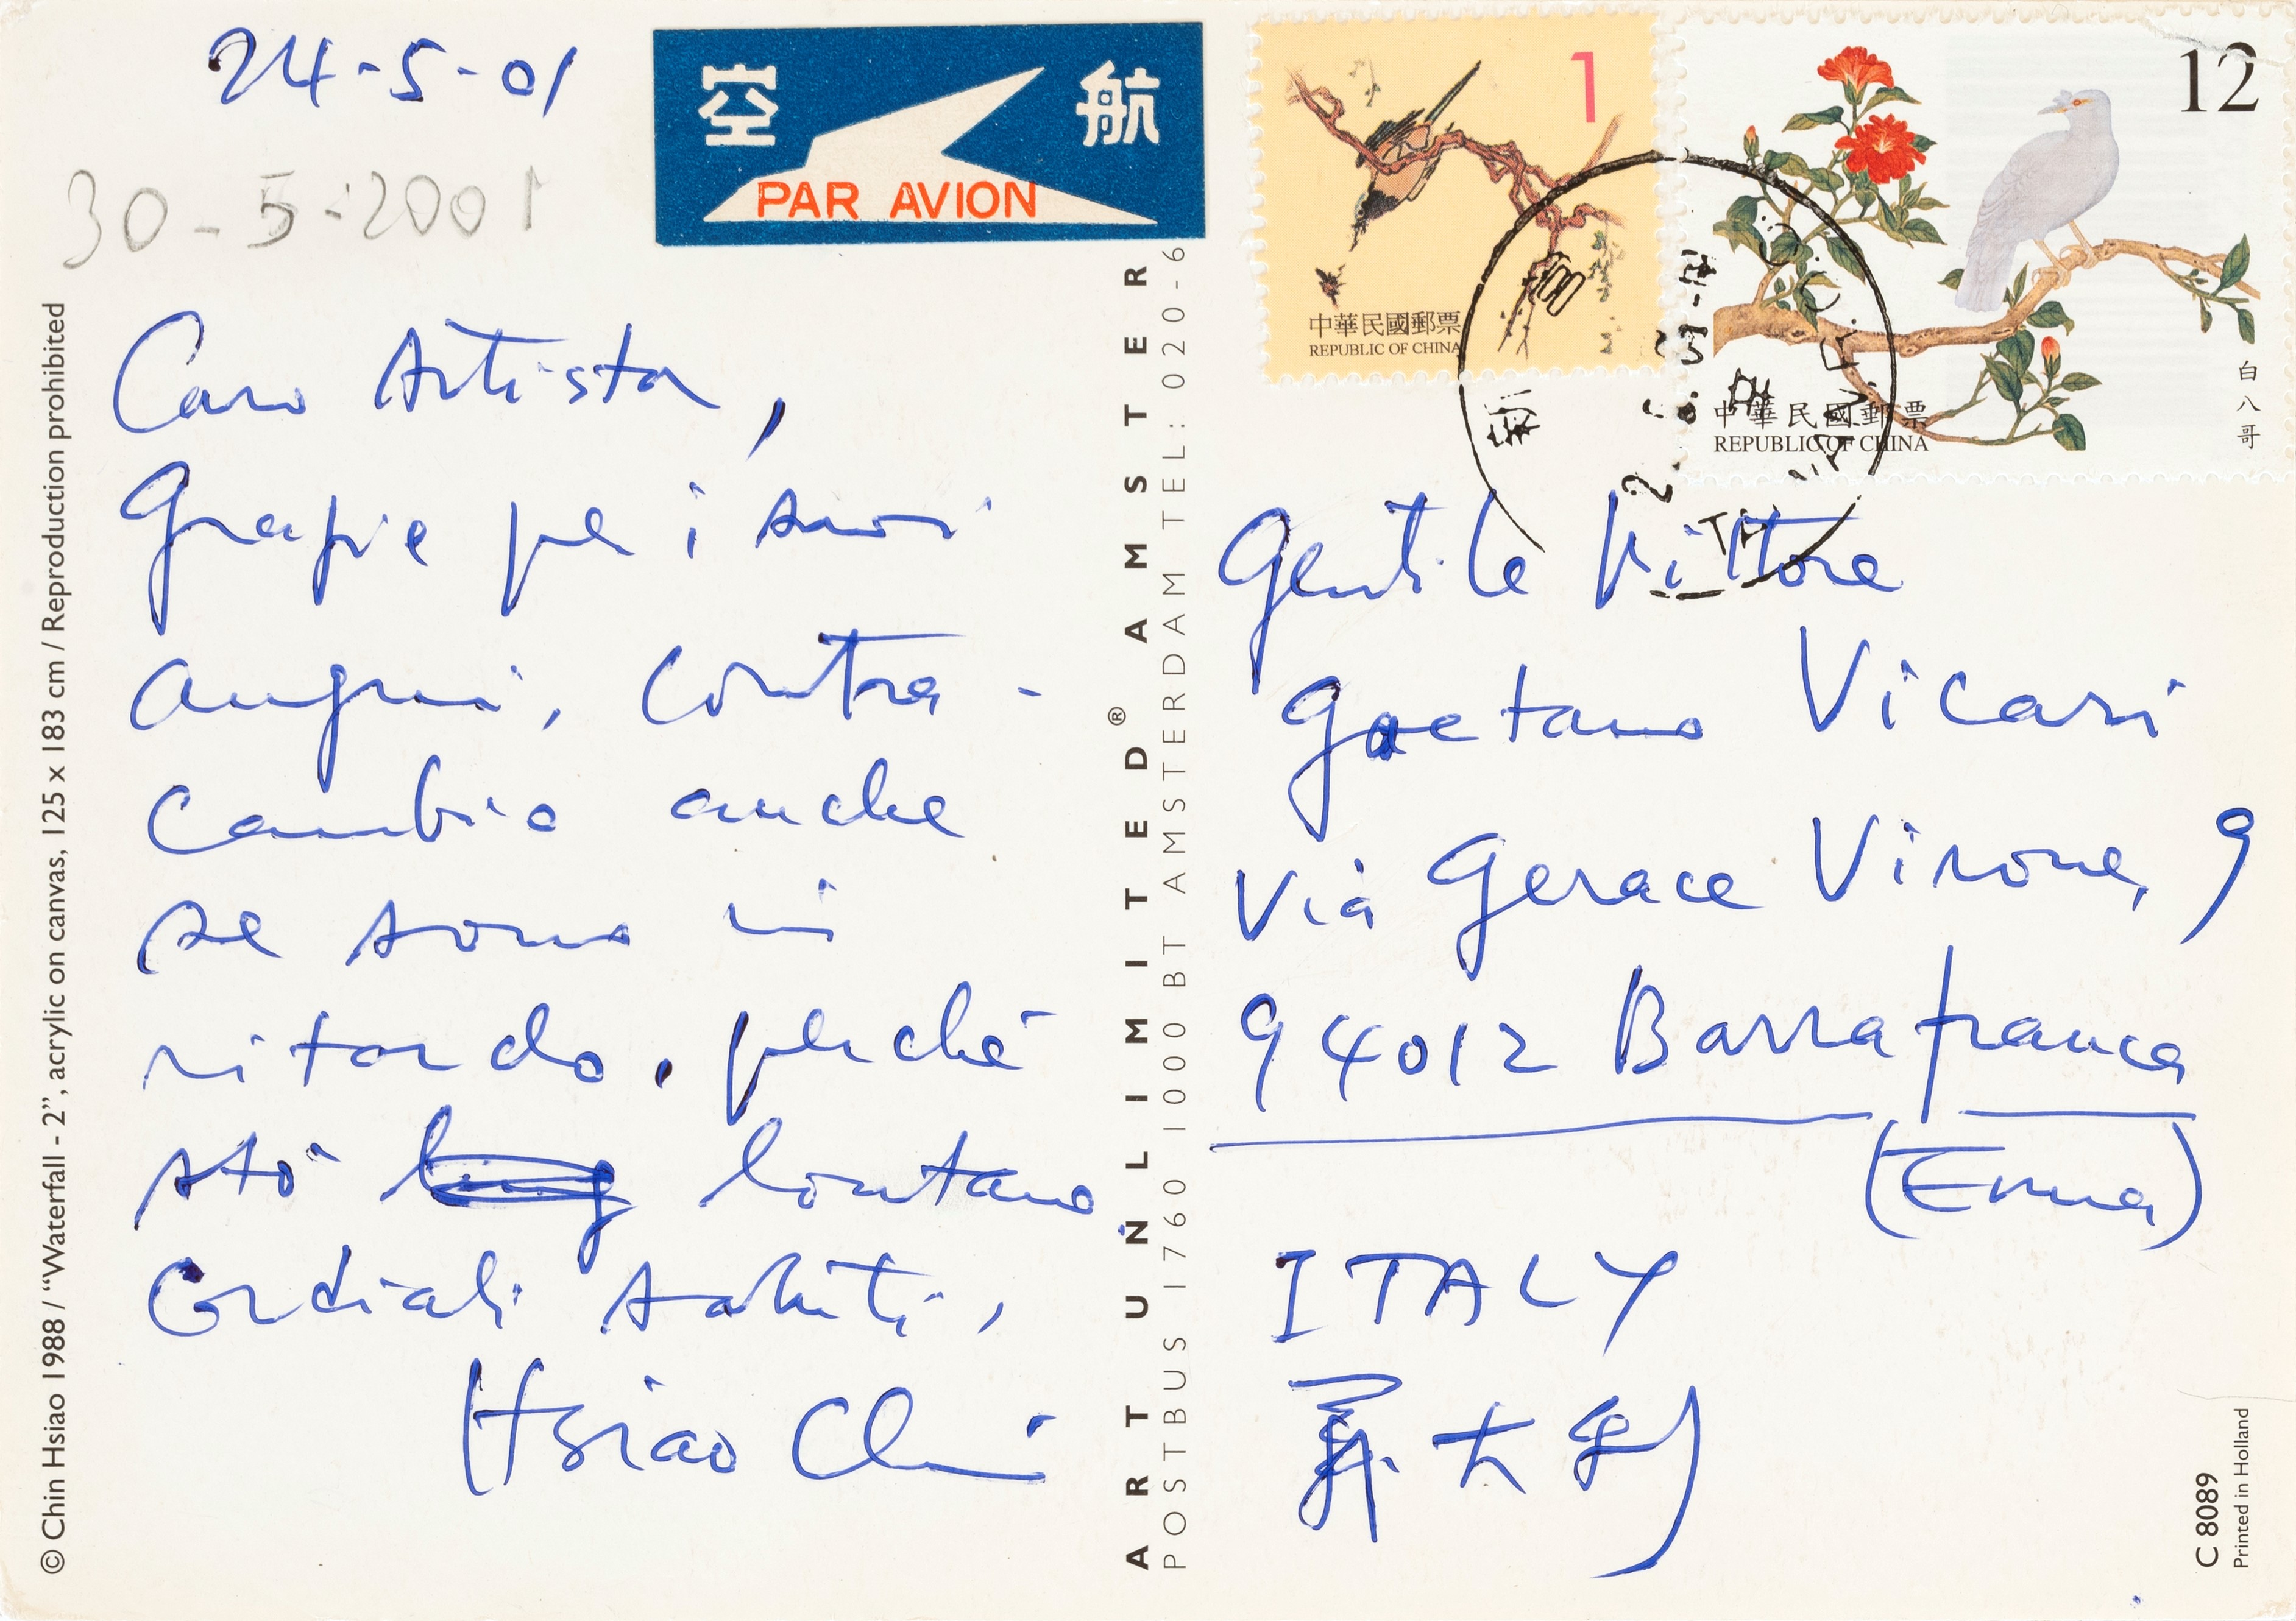 24-5-01
30-5-2001
空 航
PAR AVION
1
中華民國郵票
REPUBLIC OF CHINA
12
白八哥
中華民國郵票
REPUBLIC OF CHINA
Caro Artista,
Grazie per i suoi
auguri, contra-
cambio anche
se sono in
ritardo, perché
stò lontano
Cordiali saluti,
Hsiao Chin
Gentile Pittore
Gaetano Vicari
Via Gerace Virone, 9
94012 Barrafranca
(Enna)
ITALY
義大利
© Chin Hsiao 1988 / “Waterfall - 2”, acrylic on canvas, 125 x 183 cm / Reproduction prohibited
ART UNLIMITED® AMSTER
POSTBUS 1760 1000 BT AMSTERDAM TEL: 020-6
C 8089
Printed in Holland